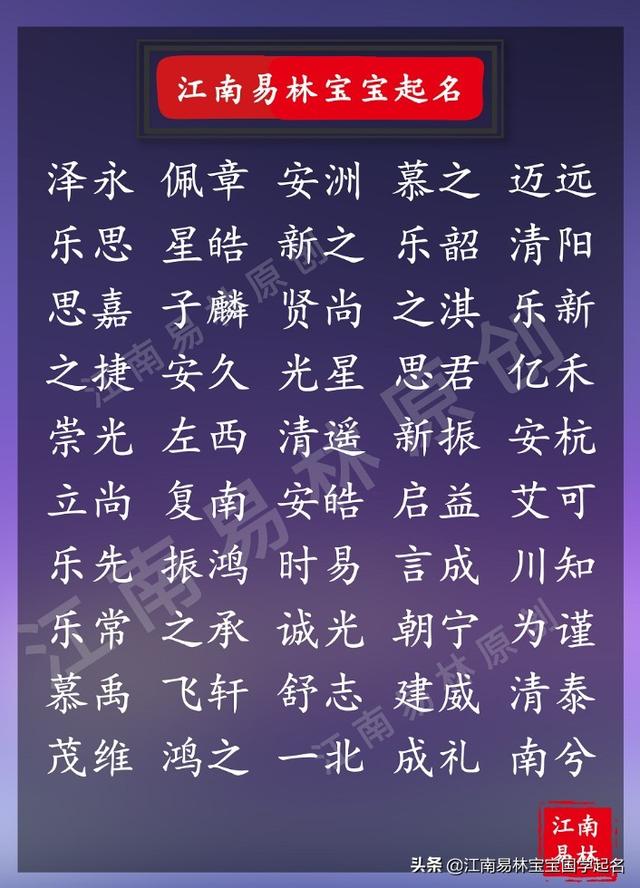 江南易林宝宝起名
泽永 佩章 安洲 慕之 迈远
乐思 星皓 新之 乐韶 清阳
思嘉 子麟 贤尚 之淇 乐新
之捷 安久 光星 思君 亿禾
崇光 左西 清遥 新振 安杭
立尚 复南 安皓 启益 艾可
乐先 振鸿 时易 言成 川知
乐常 之承 诚光 朝宁 为谨
慕禹 飞轩 舒志 建威 清泰
茂维 鸿之 一北 成礼 南兮
江南易林原创
江南易林原创
江南易林原创
江南
易林
头条 @江南易林宝宝国学起名